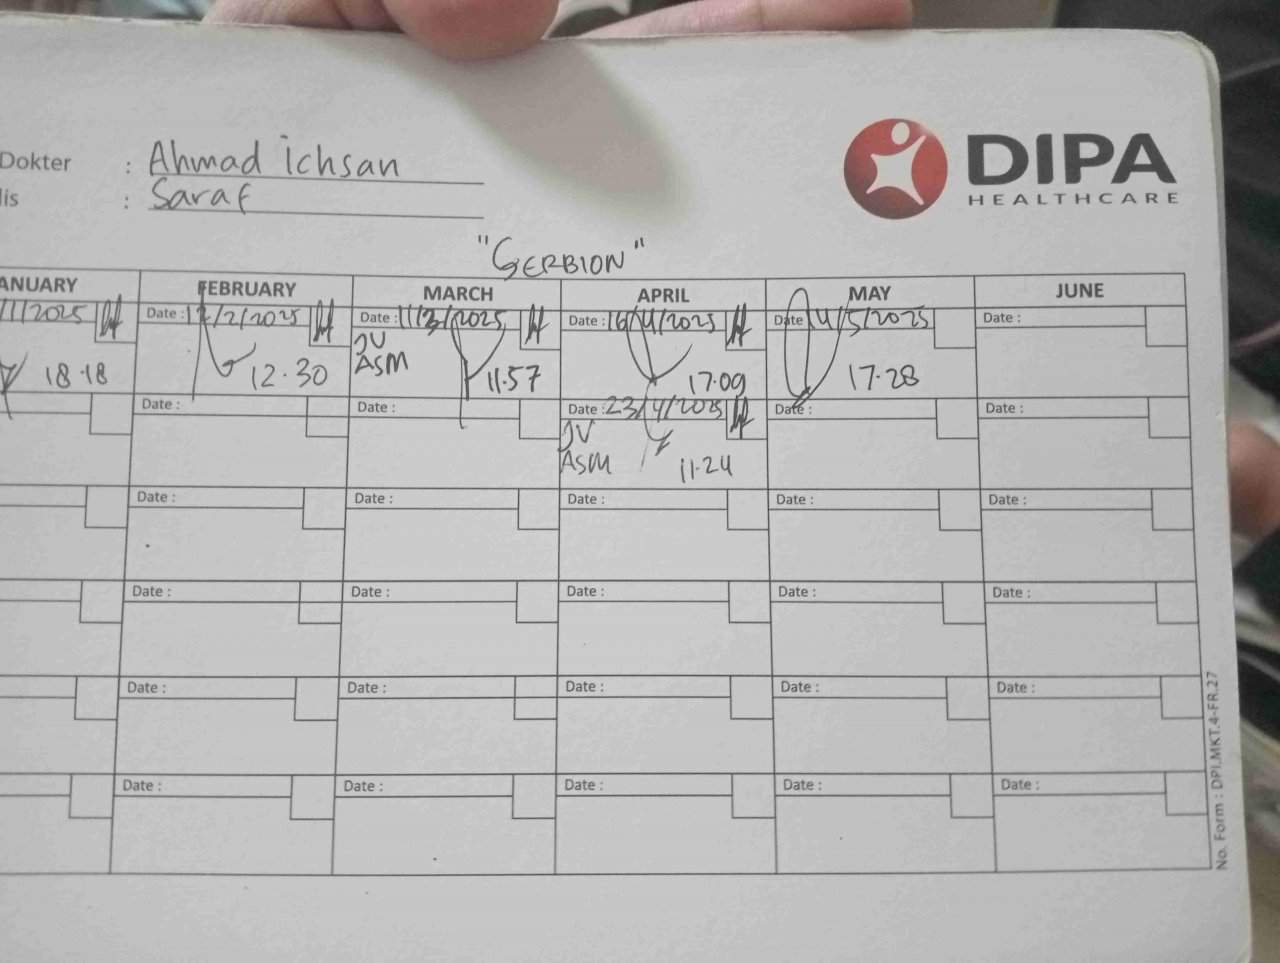 Dokter : Ahmad ichsan
lis : Saraf
DIPA
HEALTHCARE
"GERBION"
ANUARY FEBRUARY MARCH APRIL MAY JUNE
/1/2025 Date : 12/2/2025 Date : 11/3/2025 Date : 16/4/2025 Date 14/5/2025 Date :
JV
ASM
18.18 12.30 11.57 17.09 17.28
Date : Date : Date : 23/4/2025 Date : Date :
JV
ASM 11.24
Date : Date : Date : Date : Date :
Date : Date : Date : Date : Date :
Date : Date : Date : Date : Date :
Date : Date : Date : Date : Date :
No. Form : DPI.MKT.4-FR.27